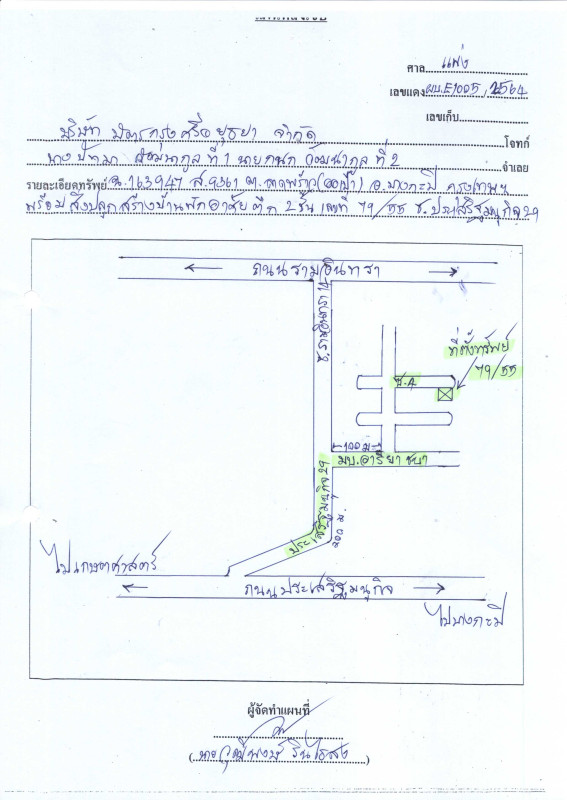 ศาล แพ่ง
เลขแดง ผบ.E1005/2564
เลขเก็บ
บริษัท บัตรกรุงศรีอยุธยา จำกัด โจทก์
นาง ที่ 1 นาย ที่ 2 จำเลย
รายละเอียดทรัพย์ ฉ.163947 ส.9361 ต.ลาดพร้าว อ.บางกะปิ กรุงเทพฯ
พร้อมสิ่งปลูกสร้างบ้านพักอาศัย ตึก 2 ชั้น เลขที่ 79/55 ซ.ประเสริฐมนูกิจ 29
ถนนรามอินทรา
ซ.รามอินทรา 14
ที่ตั้งทรัพย์
79/55
ซ.4
100 ม.
มบ.อารียา ชบา
ประเสริฐมนูกิจ 29
200 ม.
ไปเกษตรศาสตร์
ถนนประเสริฐมนูกิจ
ไปบางกะปิ
ผู้จัดทำแผนที่
(นาย)